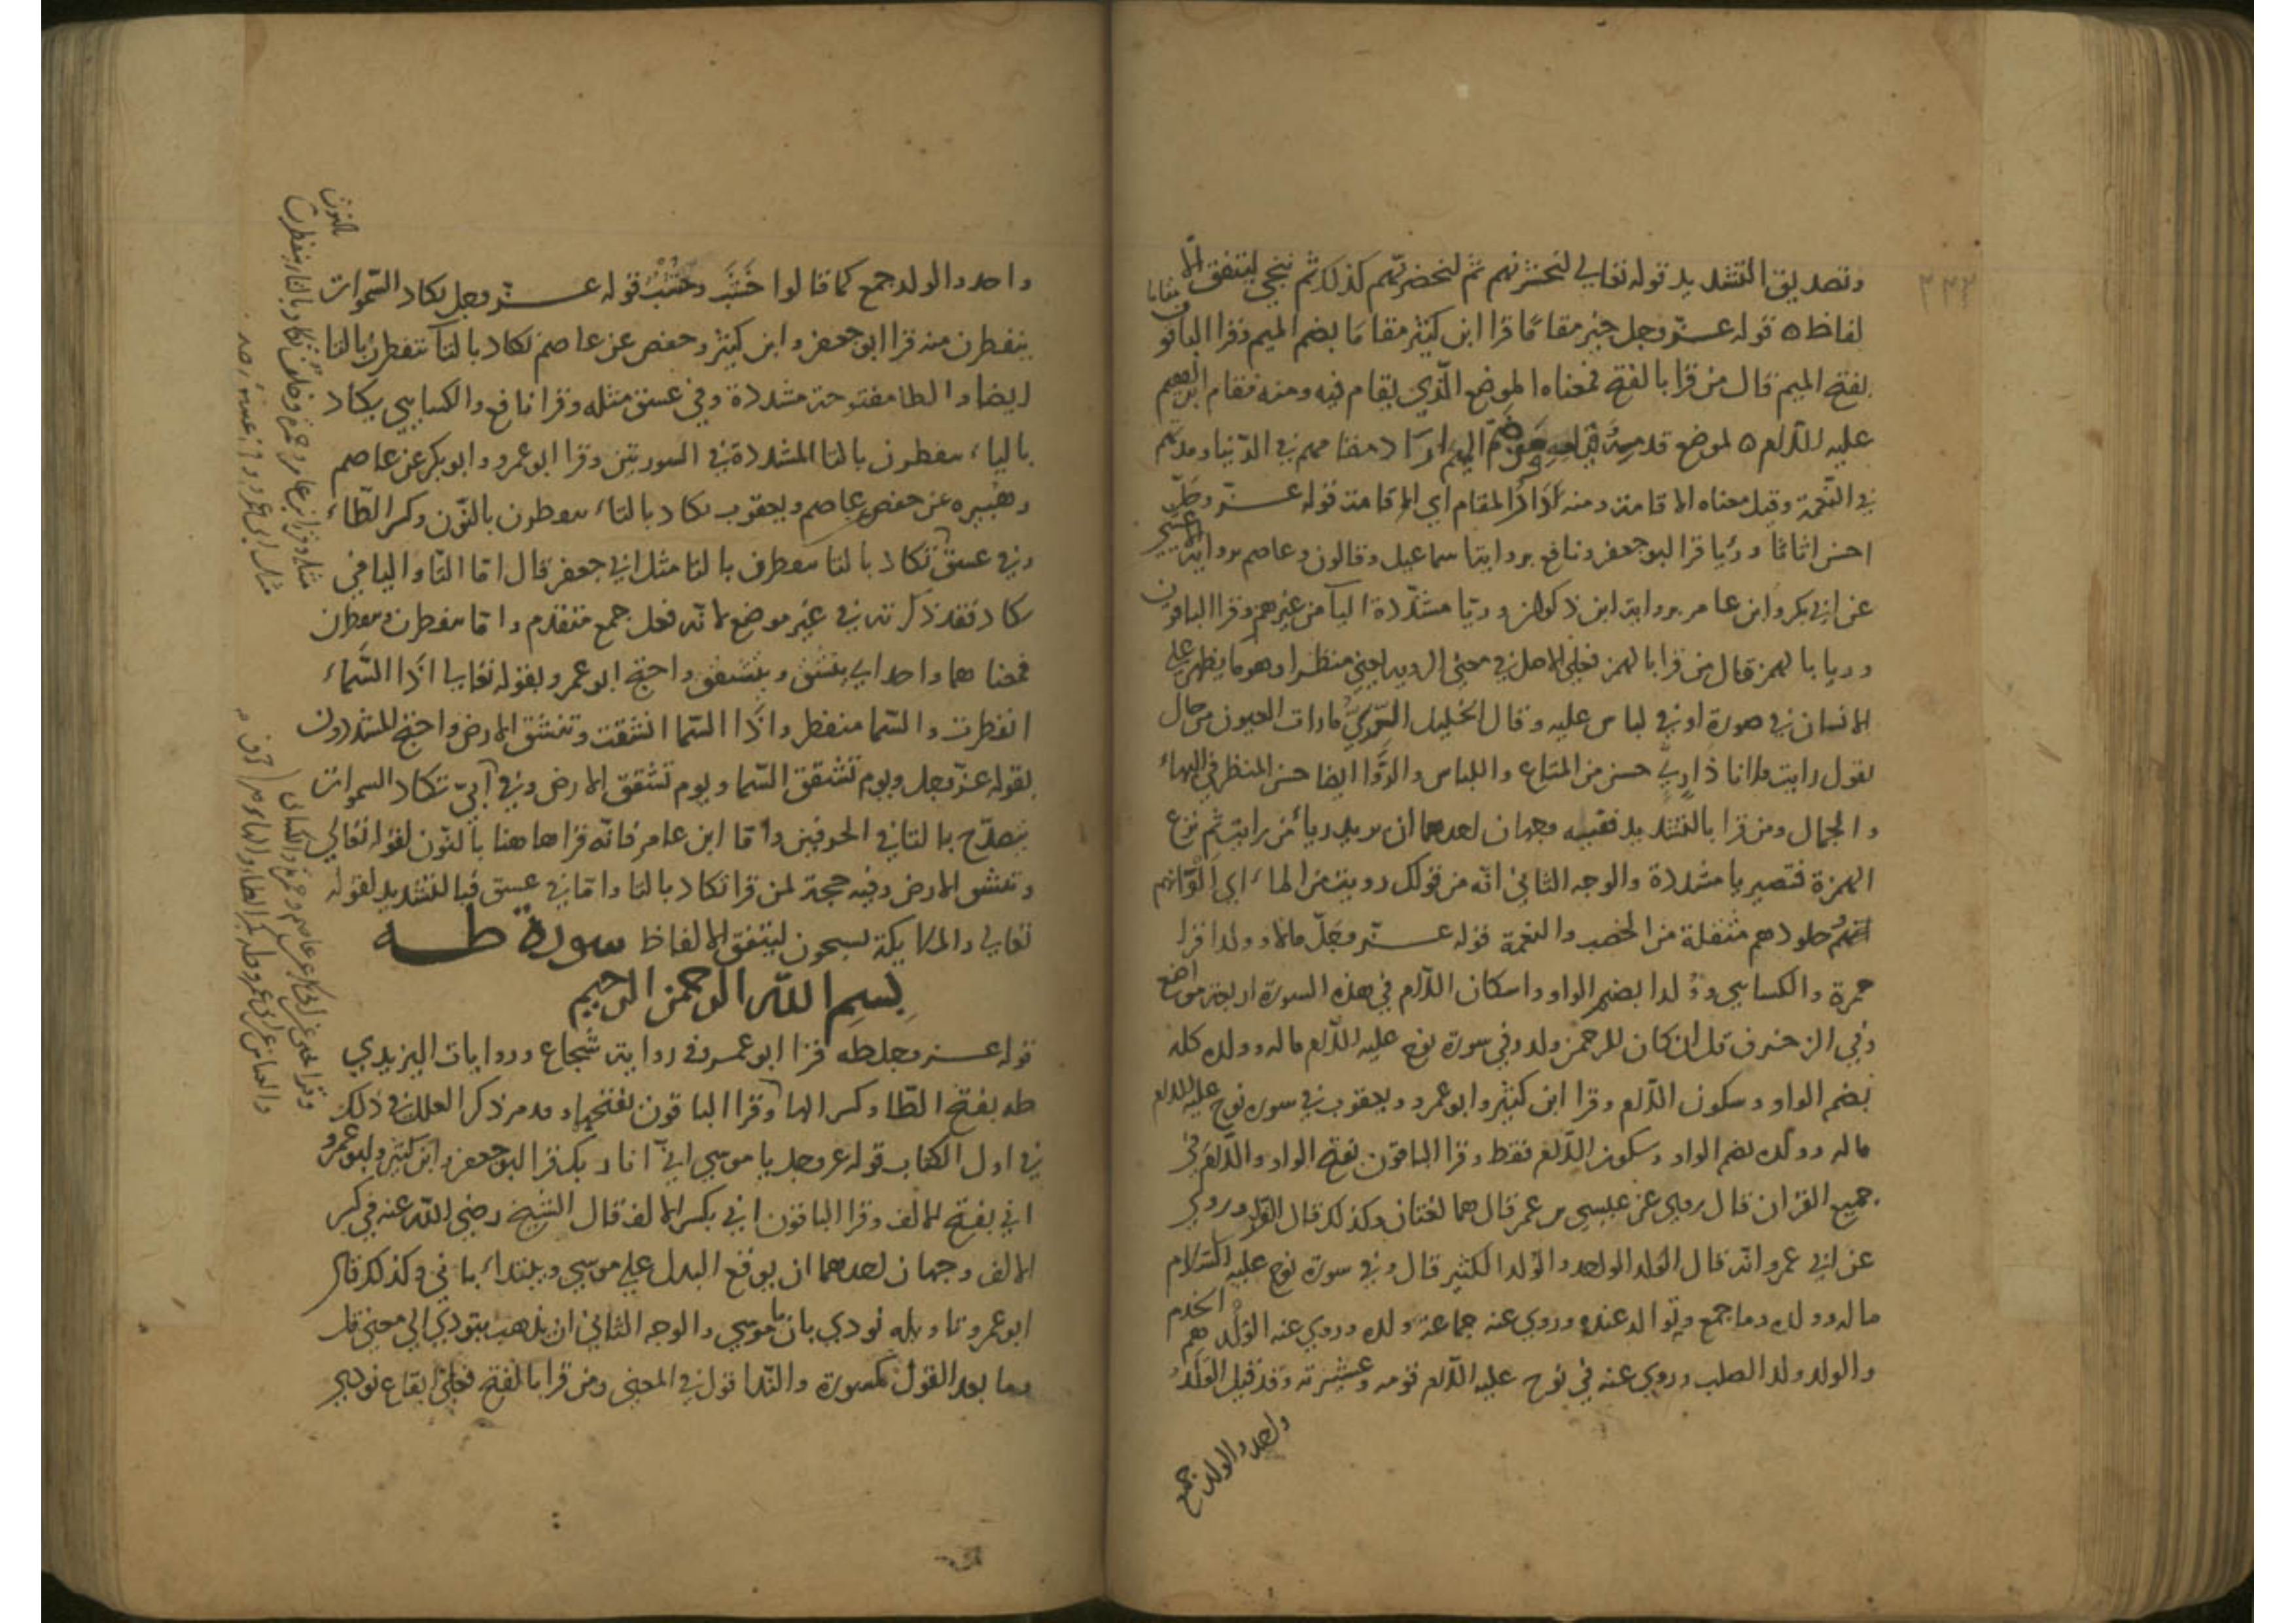 وتصديق التشديد قوله تعالى لنحشرنهم ثم لنحضرنهم كذلك ثم ننجي ليتفق الا
لفاظ ه قوله عز وجل خير مقاما قرا ابن كثير مقاما بضم الميم وقرا الباقون مقاما
بفتح الميم قال من قرا بالفتح فمعناه الموضع الذي يقام فيه ومنه مقام ابرهيم
عليه السلام ه لموضع الميم اراد في الدنيا
في النعمة وقيل معناه الاقامة ومنه المقام اي الاقامة قوله عز وجل
احسن اثاثا ورئيا قرا ابو جعفر ونافع برواية اسماعيل وقالون وعاصم برواية الاعشى
عن ابي بكر وابن عامر برواية ابن ذكوان وريا مشددة اليا من غير همز وقرا الباقون
وريا بالهمز قال من قرا بالهمز فعلى الاصل في معنى الرويه يعني منظرا وهو ما يظهر على
الانسان في صورة او في لباس عليه وقال الخليل الرئي ما رات العيون من حال
يقول رايت فلانا ذا رئي حسن من المتاع واللباس والرؤا ايضا حسن المنظر في البهاء
والجمال ومن قرا بالتشديد ففيه وجهان احدهما ان يريد ريا من رايت ثم نزع
الهمزة فتصير يا مشددة والوجه الثاني انه من قولك رويت من الماء اي الوانهم
جلودهم من الخصب والنعمة قوله عز وجل مالا وولدا قرا
حمزة والكسايي وولدا بضم الواو واسكان اللام في هذه السورة اربعة مواضع
وفي الزخرف قل ان كان للرحمن ولد وفي سورة نوح عليه السلام ماله وولده كله
بضم الواو وسكون اللام وقرا ابن كثير وابو عمرو ويعقوب في سورة نوح عليه السلام
ماله وولده بضم الواو وسكون اللام فقط وقرا الباقون بفتح الواو واللام في
جميع القران قال روي عن عيسى بن عمر قال هما لغتان وكذلك قال الفرا وروي
عن ابي عمرو انه قال الولد الواحد والولد الكثير قال وفي سورة نوح عليه السلام
ماله وولده وما جمع وتوالد عنده وروي عنه جماعة ولده وروي عنه الولد هم الخدم
والولد ولد الصلب وروي عنه في نوح عليه السلام قومه وعشيرته وقد قيل الولد
واحد والولد جمع
٢٢٢
واحد والولد جمع كما قالوا خشب وخشب قوله عز وجل تكاد السموات
يتفطرن منه قرا ابو جعفر وابن كثير وحفص عن عاصم تكاد بالتا تتفطرن بالتا
ايضا والطا مفتوحة مشددة وفي عسق مثله وقرا نافع والكسايي يكاد
بالياء يتفطرن بالتا المشددة في السورتين وقرا ابو عمرو وابو بكر عن عاصم
وهبيره عن حفص عن عاصم ويعقوب تكاد بالتاء ينفطرن بالنون وكسر الطاء
وفي عسق تكاد بالتا يتفطرن بالتا مثل ابي جعفر قال اما التا واليا في
تكاد فقد ذكرته في غير موضع لانه فعل جمع متقدم واما ينفطرن ويتفطرن
فمعناهما واحد اي ينشق ويتشقق واحتج ابو عمرو بقوله تعالى اذا السماء
انفطرت والسما منفطر واذا السما انشقت وتنشق الارض واحتج المشددون
بقوله عز وجل ويوم تشقق السما ويوم تشقق الارض وفي ابي تكاد السموات
يتصدع بالتا في الحرفين واما ابن عامر فانه قراها هنا بالنون لقوله تعالى
وتنشق الارض وفيه حجة لمن قرا تكاد بالتا واما في عسق فبالتشديد لقوله
تعالى والملايكة يسبحون ليتفق الالفاظ سورة طه
بسم الله الرحمن الرحيم
قوله عز وجل طه قرا ابو عمرو في رواية شجاع وروايات اليزيدي
طه بفتح الطا وكسر الها وقرا الباقون بفتحهما وقد مر ذكر العلل في ذلك
في اول الكتاب قوله عز وجل يا موسى اني انا ربك قرا ابو جعفر وابن كثير وابو عمرو
اني بفتح الالف وقرا الباقون اني بكسر الالف قال الشيخ رضي الله عنه في كسر
الالف وجهان احدهما ان يوقع البدل على موسى ويبتداء باني وكذلك قال
ابو عمرو تاويله نودي بان يا موسى والوجه الثاني ان يذهب بنودي الى معنى قال
وما بعد القول مكسورة والندا قول في المعنى ومن قرا بالفتح فعلى ايقاع نودي
بالنون